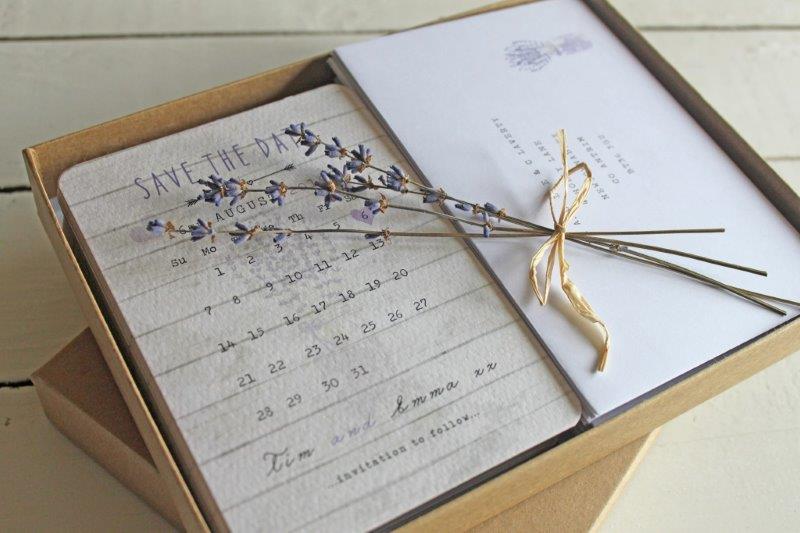 SAVE THE DA
AUGUST
Su Mo Th Fr
1 2 3 4 5 6
7 8 9 10 11 12 13
14 15 16 17 18 19 20
21 22 23 24 25 26 27
28 29 30 31
Tim and Emma xx
...invitation to follow...
& C LAVERTY
LANE
CO ANTRIM